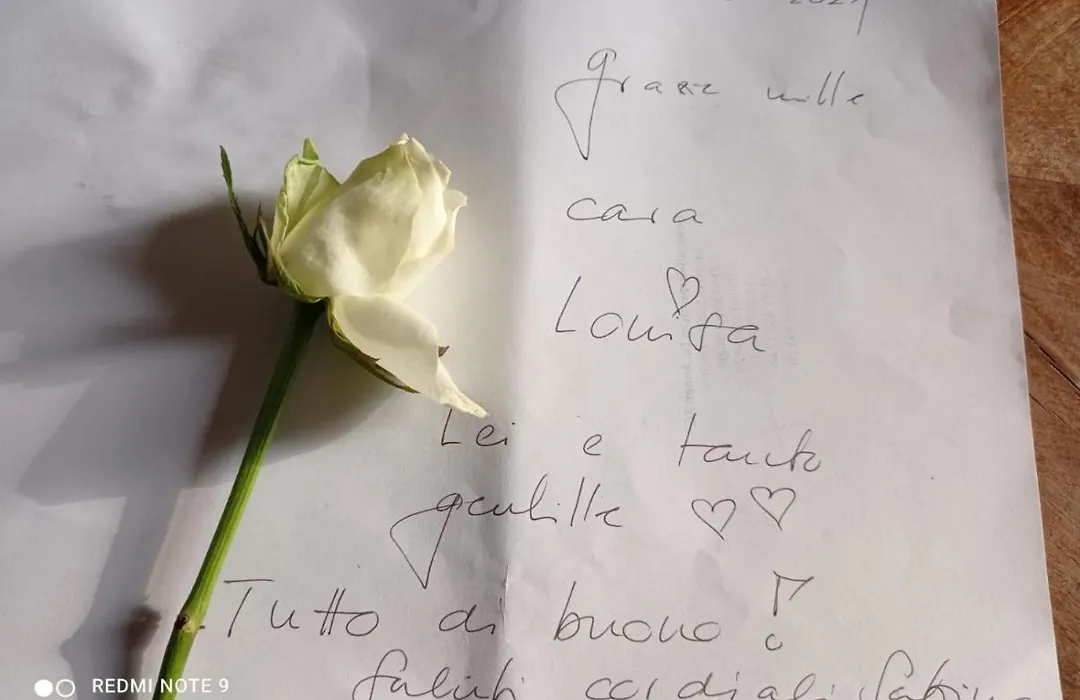 2021
grazie mille
cara
Louisa
Lei e tanto
gentille
Tutto di buono!
Saluti cordiali
REDMI NOTE 9